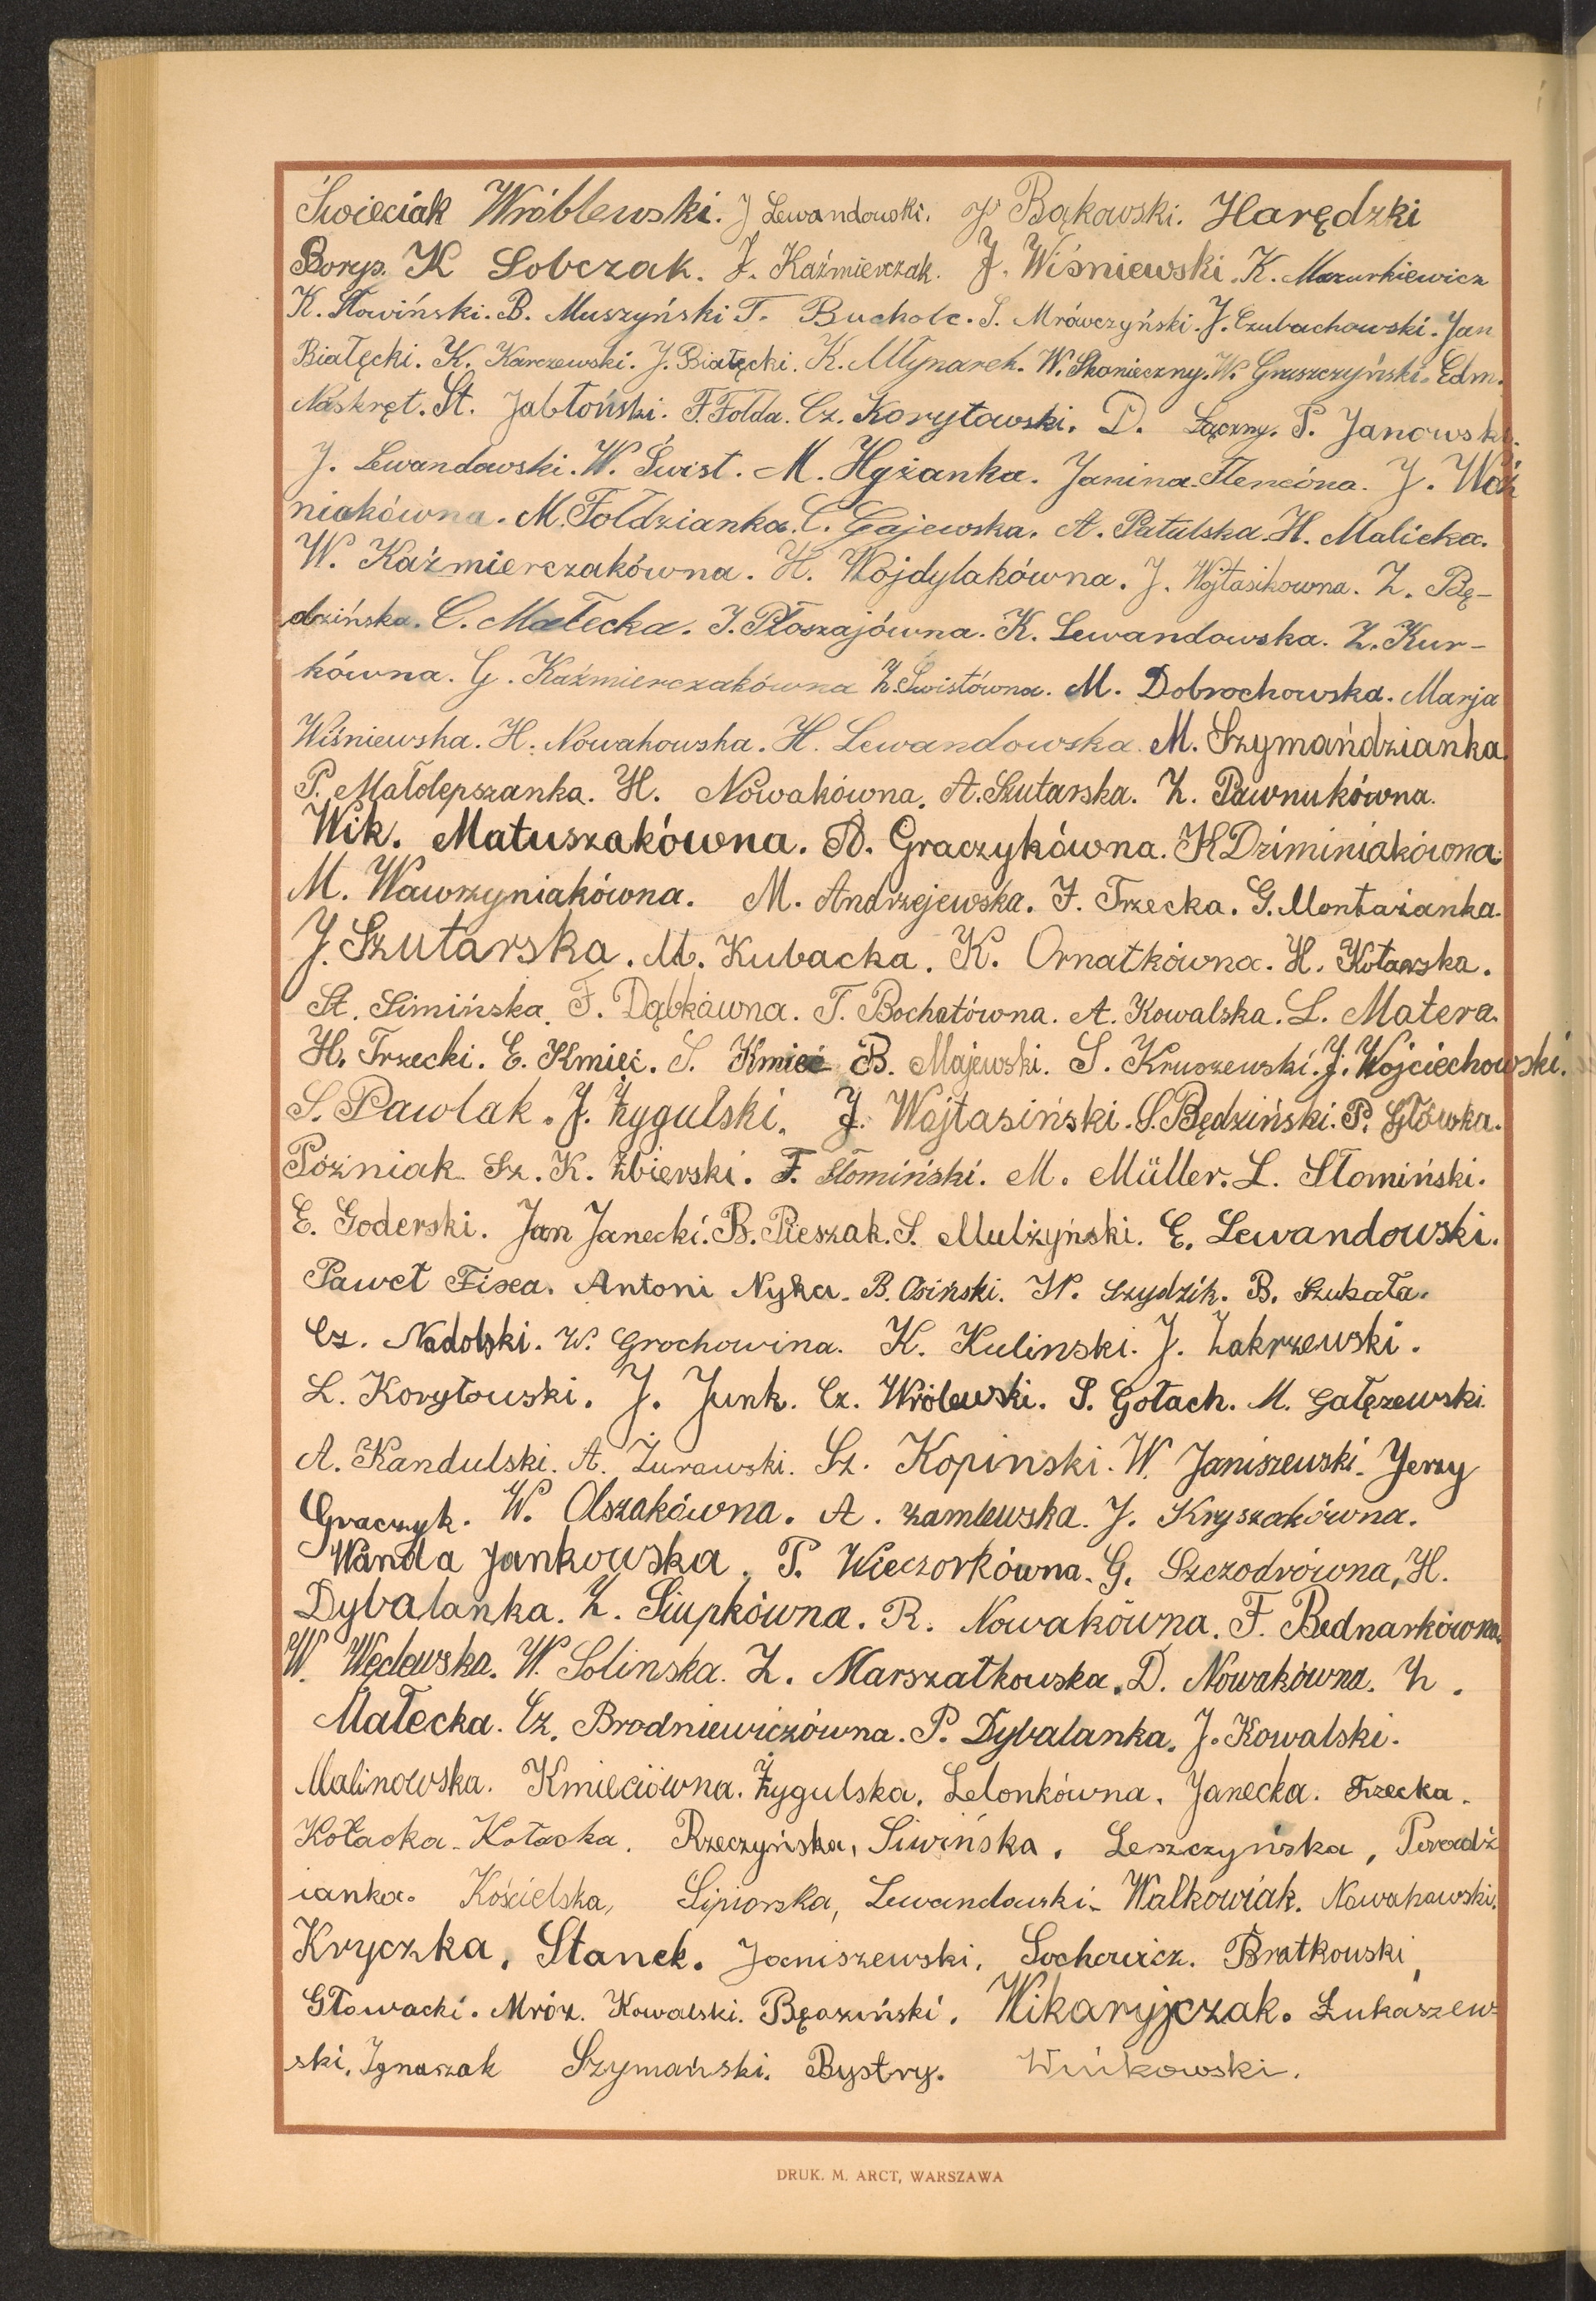 Świeciak Wróblewski. J Lewandowski. J Bąkowski. Harędzki
Borys. K Sobczak. J. Kaźmierczak. J. Wiśniewski. K. Mazurkiewicz
K. Słowiński. B. Muszyński T. Bucholc. S. Mrówczyński. J. Czubachowski. Jan
Białęcki. K. Karczewski. J. Białęcki. K. Młynarek. W. Skonieczny. W. Gruszczyński. Edm.
Naskręt. St. Jabłoński. F. Fołda. Cz. Korytowski. D. Łączny. P. Janowski.
J. Lewandowski. W. Świst. M. Hyżanka. Janina J. Woź
niakówna. M. Fołdzianka. C. Gajewska. A. Patulska. H. Malicka.
W. Kaźmierczakówna. H. Wojdylakówna. J. Wojtasikowna. Z. Bę-
dzińska. C. Małecka. J. Płoszajówna. K. Lewandowska. Z. Kur-
kówna. G. Kaźmierczakówna Z. Świstówna. M. Dobrochowska. Marja
Wiśniewska. H. Nowakowska. H. Lewandowska. M. Szymańdzianka.
P. Małolepszanka. H. Nowakówna. A. Szutarska. Z. Pawnukówna.
Wik. Matuszakówna. A. Graczykówna. K Dziminiakówna.
M. Wawrzyniakówna. M. Andrzejewska. F. Trzecka. G. Montażanka.
J. Szutarska. M. Kubacka. K. Ornatkówna. H. Kotarska.
St. Simińska. F. Dąbkówna. T. Bochatówna. A. Kowalska. L. Matera.
H. Trzecki. E. Kmieć. S. Kmieć B. Majewski. S. Kruszewski. J. Wojciechowski.
S. Pawlak. J. Żygulski. J. Wojtasiński. S. Będziński. P. Główka.
Póżniak Sz. K. Zbierski. F. Słomiński. M. Müller. L. Słomiński.
E. Goderski. Jan Janecki. B. Pieszak. S. Mulżyński. E. Lewandowski.
Paweł Fixa. Antoni Nyka. B. Osiński. W. Szydzik. B. Szukała.
Cz. Nadolski. W. Grochowina. K. Kulinski. J. Zakrzewski.
L. Korytowski. J. Junk. Cz. Wrólewski. S. Gołach. M. Gałęzewski
A. Kandulski. A. Żurawski. Sz. Kopinski. W. Janiszewski. Jerzy
Graczyk. W. Olszakówna. A. Zamlewska. J. Kryszakówna.
Wanda Jankowska. P. Wieczorkówna. G. Szczodrówna, H.
Dybalanka. Z. Siupkówna. R. Nowakówna. F. Bednarkówna.
W. Węclewska. W. Solinska. Z. Marszałkowska. D. Nowakówna. Z.
Małecka. Cz. Brodniewiczówna. P. Dybalanka. J. Kowalski.
Malinowska. Kmieciówna. Żygulska. Lelonkówna. Janecka. Trzecka.
Kołacka. Kołacka. Rzeczyńska, Siwińska. Leszczyńska,
ianka. Kościelska, Lipiorska, Lewandowski. Walkowiak. Nowakowski.
Kryczka. Stanek. Janiszewski. Sochowicz. Bratkowski,
Głowacki. Mróz. Kowalski. Będziński. Wikaryjczak. Łukaszew-
ski. Ignaszak Szymański. Bystry. Winkowski.
DRUK. M. ARCT, WARSZAWA